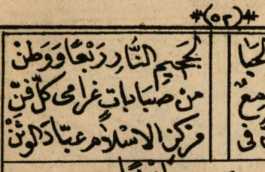 *(٥٢)*
لجحيم النار ربعا ووطن
من صبابات غرامى كل فن
مركز الاسلام عباد الوثن